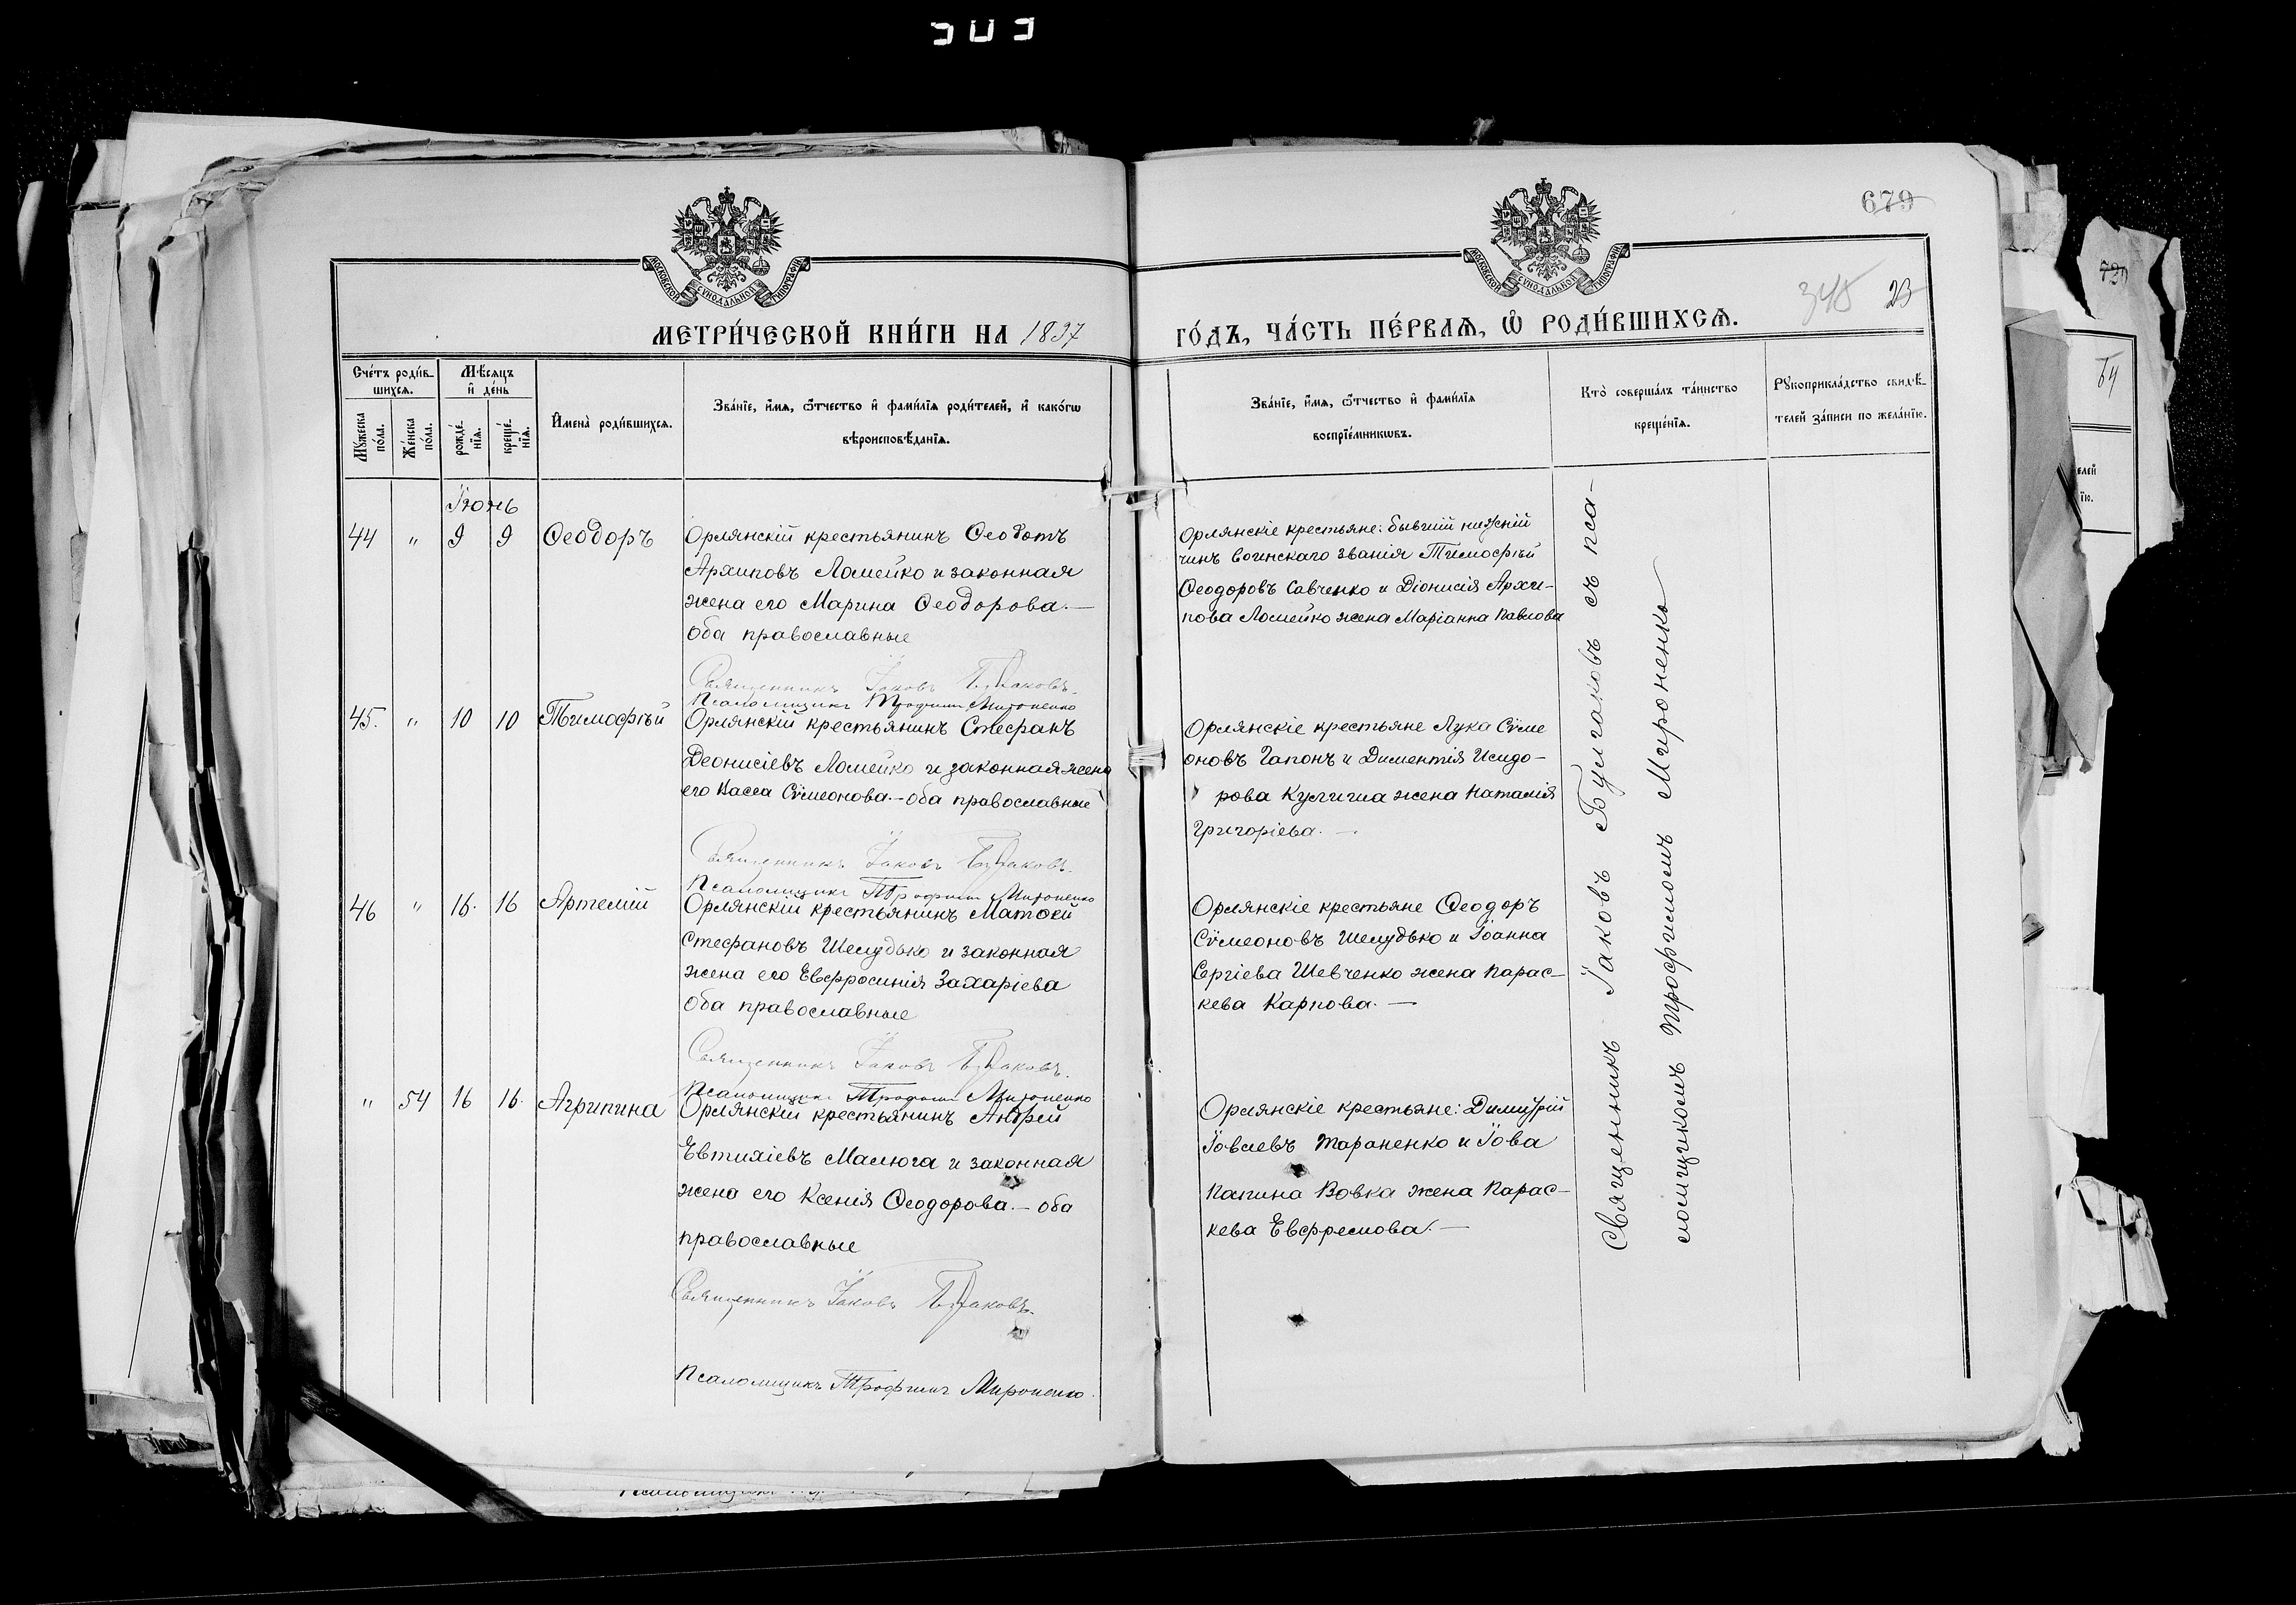 679
МОСКОВСКОЙ СУНОДАЛЬНОЙ ТИПОГРАФІИ
МОСКОВСКОЙ СУНОДАЛЬНОЙ ТИПОГРАФІИ
345 23
МЕТРИ́ЧЕСКОЙ КНИ́ГИ НА 1897
ГО́ДЪ, ЧА́СТЬ ПЕ́РВАѦ, Ѡ҆ РОДИ́ВШИХСѦ.
Сче́тъ роди́в-
шихсѧ.
Мꙋ́жеска по́ла.
Же́нска по́ла.
Мѣ́сѧцъ
и҆ де́нь
рожде́-
нїѧ.
креще́-
нїѧ.
И҆мена̀ роди́вшихсѧ.
Зва́нїе, и҆́мѧ, ѻ҆́тчество и҆ фами́лїѧ роди́телей, и҆ како́гѡ
вѣроисповѣ́данїѧ.
Зва́нїе, и҆́мѧ, ѻ҆́тчество и҆ фами́лїѧ
воспрїе́мникѡвъ.
Кто̀ соверша́лъ та́инство
креще́нїѧ.
Рꙋкоприкла́дство свидѣ́-
телей за́писи по жела́нїю.
Іюнь
44 " 9 9 Ѳеодоръ
Орлянскій крестьянинъ Ѳеодотъ
Архиповъ Ломейко и законная
жена его Марина Ѳеодорова.—
оба православные
Священникъ Іаковъ Булгаковъ.
Псаломщикъ Трофимъ Мироненко
Орлянскіе крестьяне: бывшій нижній
чинъ воинскаго званія Тимоѳей
Ѳеодоровъ Савченко и Діонисія Архи-
пова Ломейко жена Маріанна Павлова
45. " 10 10 Тимоѳей
Орлянскій крестьянинъ Стефанъ
Деонисіевъ Ломейко и законная жена
его Васса Сѵмеонова.—оба православные
Священникъ Іаковъ Булгаковъ.
Псаломщикъ Трофимъ Мироненко
Орлянскіе крестьяне Лука Сѵме
оновъ Гапонъ и Диментія Исидо-
рова жена Наталія
Григоріева. —
46 " 16. 16 Артемій
Орлянскій крестьянинъ Матѳей
Стефановъ Шелудько и законная
жена его Евфросинія Захаріева
оба православные
Священникъ Іаковъ Булгаковъ.
Псаломщикъ Трофимъ Мироненко
Орлянскіе крестьяне Ѳеодоръ
Сѵмеоновъ Шелудько и Іоанна
Сергіева Шевченко жена Парас-
кева Карпова. —
" 54 16 16. Агрипина
Орлянскій крестьянинъ Андрей
Евтихіевъ Малюга и законная
жена его Ксенія Ѳеодорова.— оба
православные
Священникъ Іаковъ Булгаковъ.
Псаломщикъ Трофимъ Мироненко.
Орлянскіе крестьяне: Димитрій
Іовлевъ Тараненко и Іова
Вовка жена Парас-
кева Евфремова. —
Священникъ Іаковъ Булгаковъ съ пса-
ломщикомъ Трофимомъ Мироненко